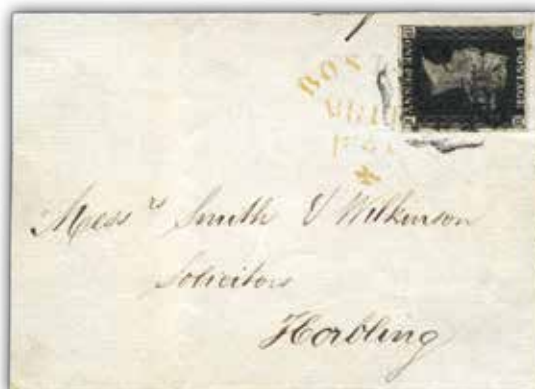 POSTAGE
ONE PENNY
BOS
Mess rs Smith & Wilkinson
Solicitors
Horbling